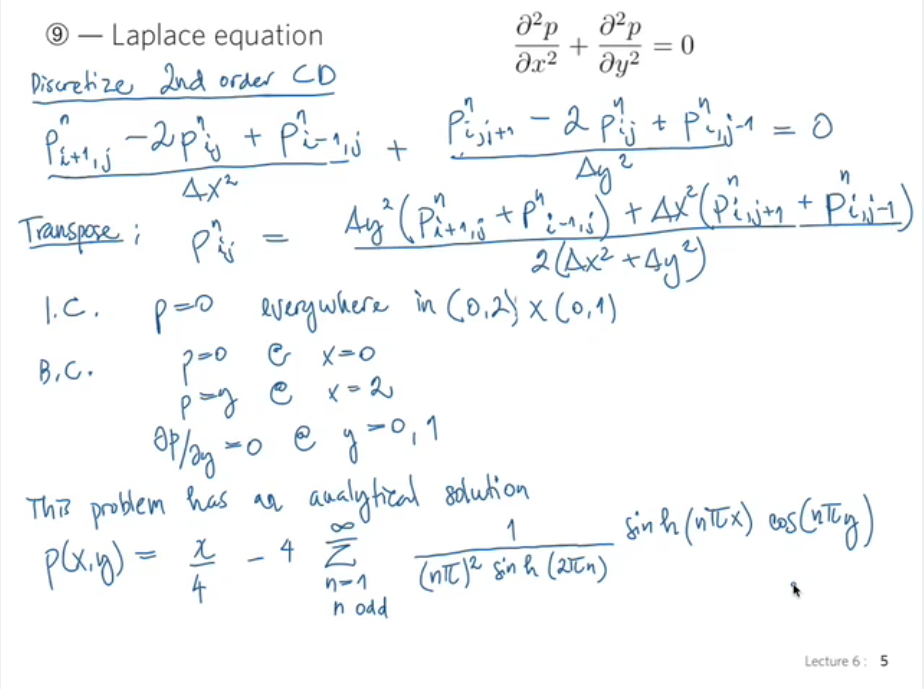 ⑨ — Laplace equation ∂²p/∂x² + ∂²p/∂y² = 0
Discretize 2nd order CD
(pⁿᵢ₊₁,ⱼ − 2pⁿᵢⱼ + pⁿᵢ₋₁,ⱼ)/Δx² + (pⁿᵢ,ⱼ₊₁ − 2pⁿᵢⱼ + pⁿᵢ,ⱼ₋₁)/Δy² = 0
Transpose: pⁿᵢⱼ = (Δy²(pⁿᵢ₊₁,ⱼ + pⁿᵢ₋₁,ⱼ) + Δx²(pⁿᵢ,ⱼ₊₁ + pⁿᵢ,ⱼ₋₁))/(2(Δx² + Δy²))
I.C. p=0 everywhere in (0,2) x (0,1)
B.C. p=0 @ x=0
p=y @ x=2
∂p/∂y=0 @ y=0,1
This problem has an analytical solution
p(x,y) = x/4 − 4 ∑_{n=1, n odd}^{∞} 1/((nπ)² sinh(2πn)) sinh(nπx) cos(nπy)
Lecture 6: 5